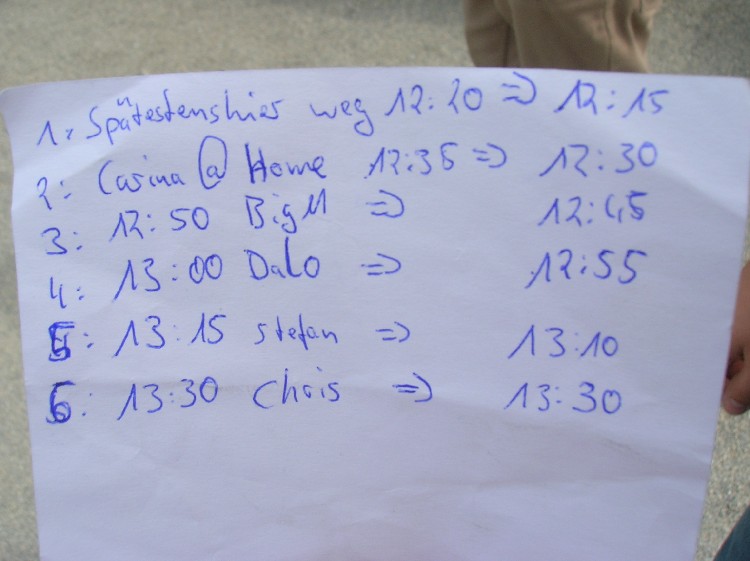 1: Spätestens hier weg 12:20 => 12:15
2: Carina @ Home 12:35 => 12:30
3: 12:50 BigM => 12:45
4: 13:00 Dalo => 12:55
5: 13:15 Stefan => 13:10
6: 13:30 Chris => 13:30